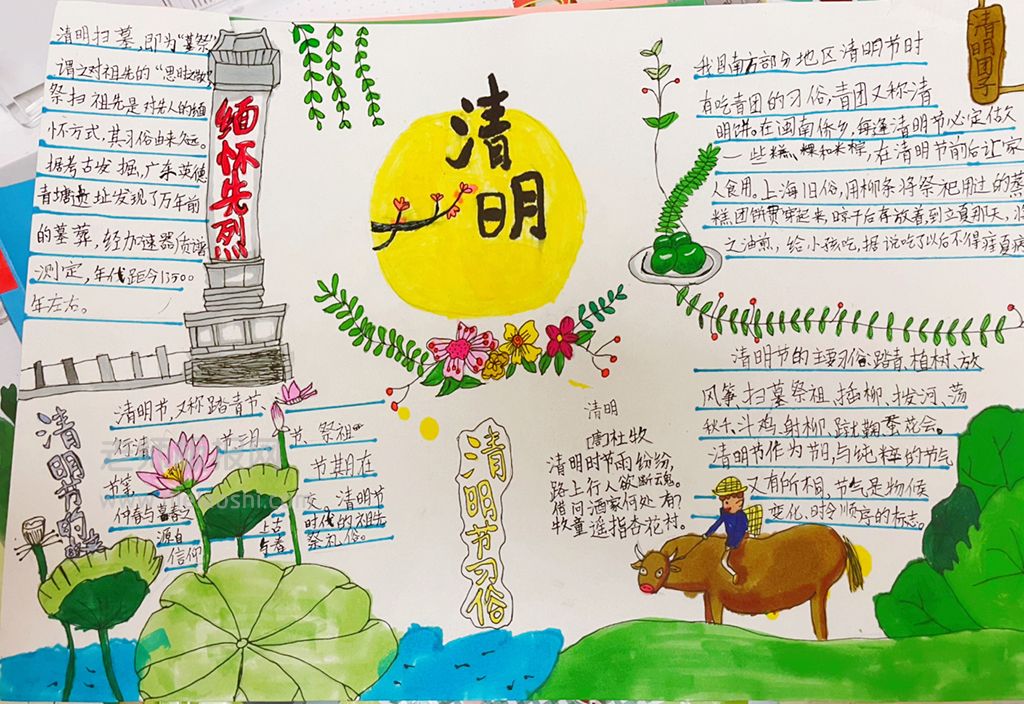 清明扫墓，即为“墓祭”
谓之对祖先的“思时之敬”
祭扫祖先是对先人的缅
怀方式，其习俗由来久远。
据考古发掘，广东英德
青塘遗址发现了万年前
的墓葬，经加速器质谱
测定，年代距今13500
年左右。
缅怀先烈
清明
我国南方部分地区清明节时
有吃青团的习俗，青团又称清
明饼。在闽南侨乡，每逢清明节必定做
一些糕、粿和米粽，在清明节前后让家
人食用。上海旧俗，用柳条将祭祀用过的蒸
糕团饼贯穿起来，晾干后存放着，到立夏那天，将
之油煎，给小孩吃，据说吃了以后不得疰夏病
清明团子
清明节的
清明节，又称踏青节、
行清
节、祭祖
节等
节期在
仲春与暮春之
交。清明节
源自
上古
时代的祖先
信仰
与春
祭礼俗。
清明节习俗
清明
[唐]杜牧
清明时节雨纷纷，
路上行人欲断魂。
借问酒家何处有？
牧童遥指杏花村。
清明节的主要习俗：踏青、植树、放
风筝、扫墓祭祖、插柳、拔河、荡
秋千、斗鸡、射柳、蹴鞠、蚕花会。
清明节作为节日，与纯粹的节气
又有所不同，节气是物候
变化、时令顺序的标志。